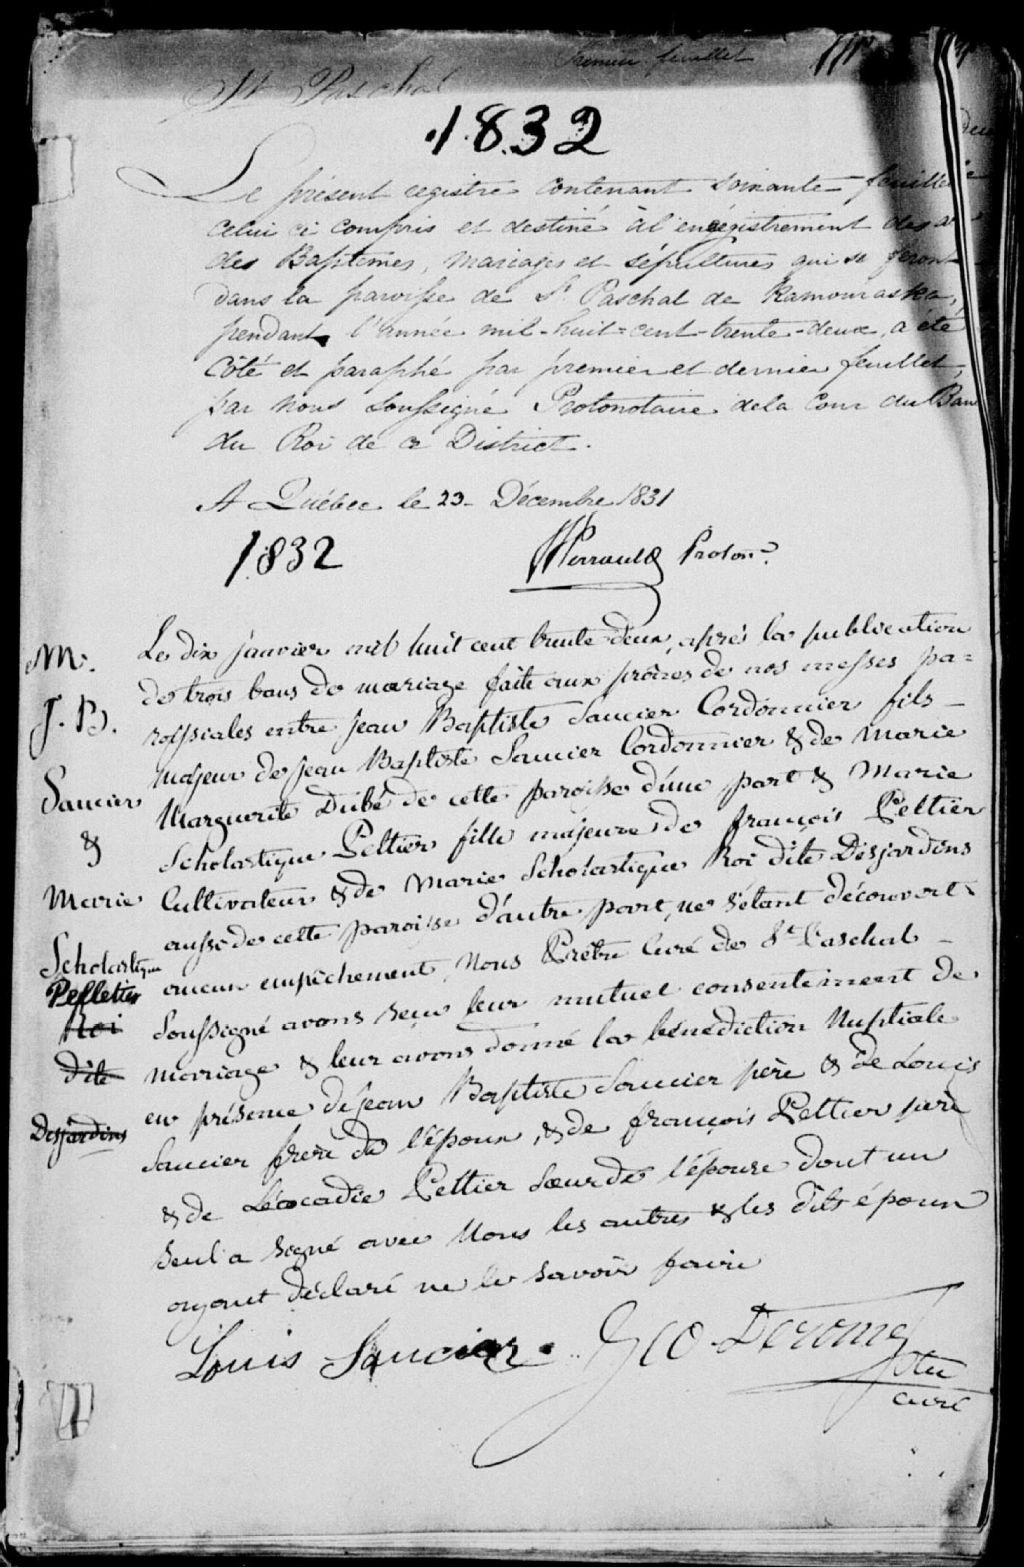 Premier feuillet
St Paschal
1832
Le présent registre contenant soixante feuillets
celui ci compris et destiné à l'enrégistrement des a
des Baptêmes, mariages et sépultures qui se feront
dans la paroisse de St Paschal de Kamouraska,
pendant l'année mil-huit-cent-trente-deux, a été
côté et paraphé par premier et dernier feuillet,
par nous soussigné Protonotaire de la Cour du Banc
du Roi de ce District.
A Québec le 23 Décembre 1831
1832
Perrault Proton.re
M.
J. B.
Saucier
&
Marie
Scholastique
Pelletier
Roi
dite
Desjardins
Le dix janvier mil huit cent trente deux, après la publication
de trois bans de mariage faite aux prônes de nos messes pa=
roissiales entre Jean Baptiste Saucier Cordonnier fils
majeur de Jean Baptiste Saucier Cordonnier & de Marie
Marguerite Dubé de cette paroisse d'une part & Marie
Scholastique Peltier fille majeure de françois Peltier
Cultivateur & de Marie Scholastique Roi dite Desjardins
aussi de cette paroisse d'autre part, ne s'étant découvert
aucun empêchement, Nous Prêtre Curé de St Paschal
Soussigné avons reçu leur mutuel consentement de
mariage & leur avons donné la bénédiction Nuptiale
en présence de Jean Baptiste Saucier père & de Louis
Saucier frère de l'époux, & de françois Peltier père
& de Léocadie Peltier sœur de l'épouse dont un
seul a signé avec Nous les autres & les dits époux
ayant déclaré ne le savoir faire
Louis Saucier Geo Derome
Ptre
curé